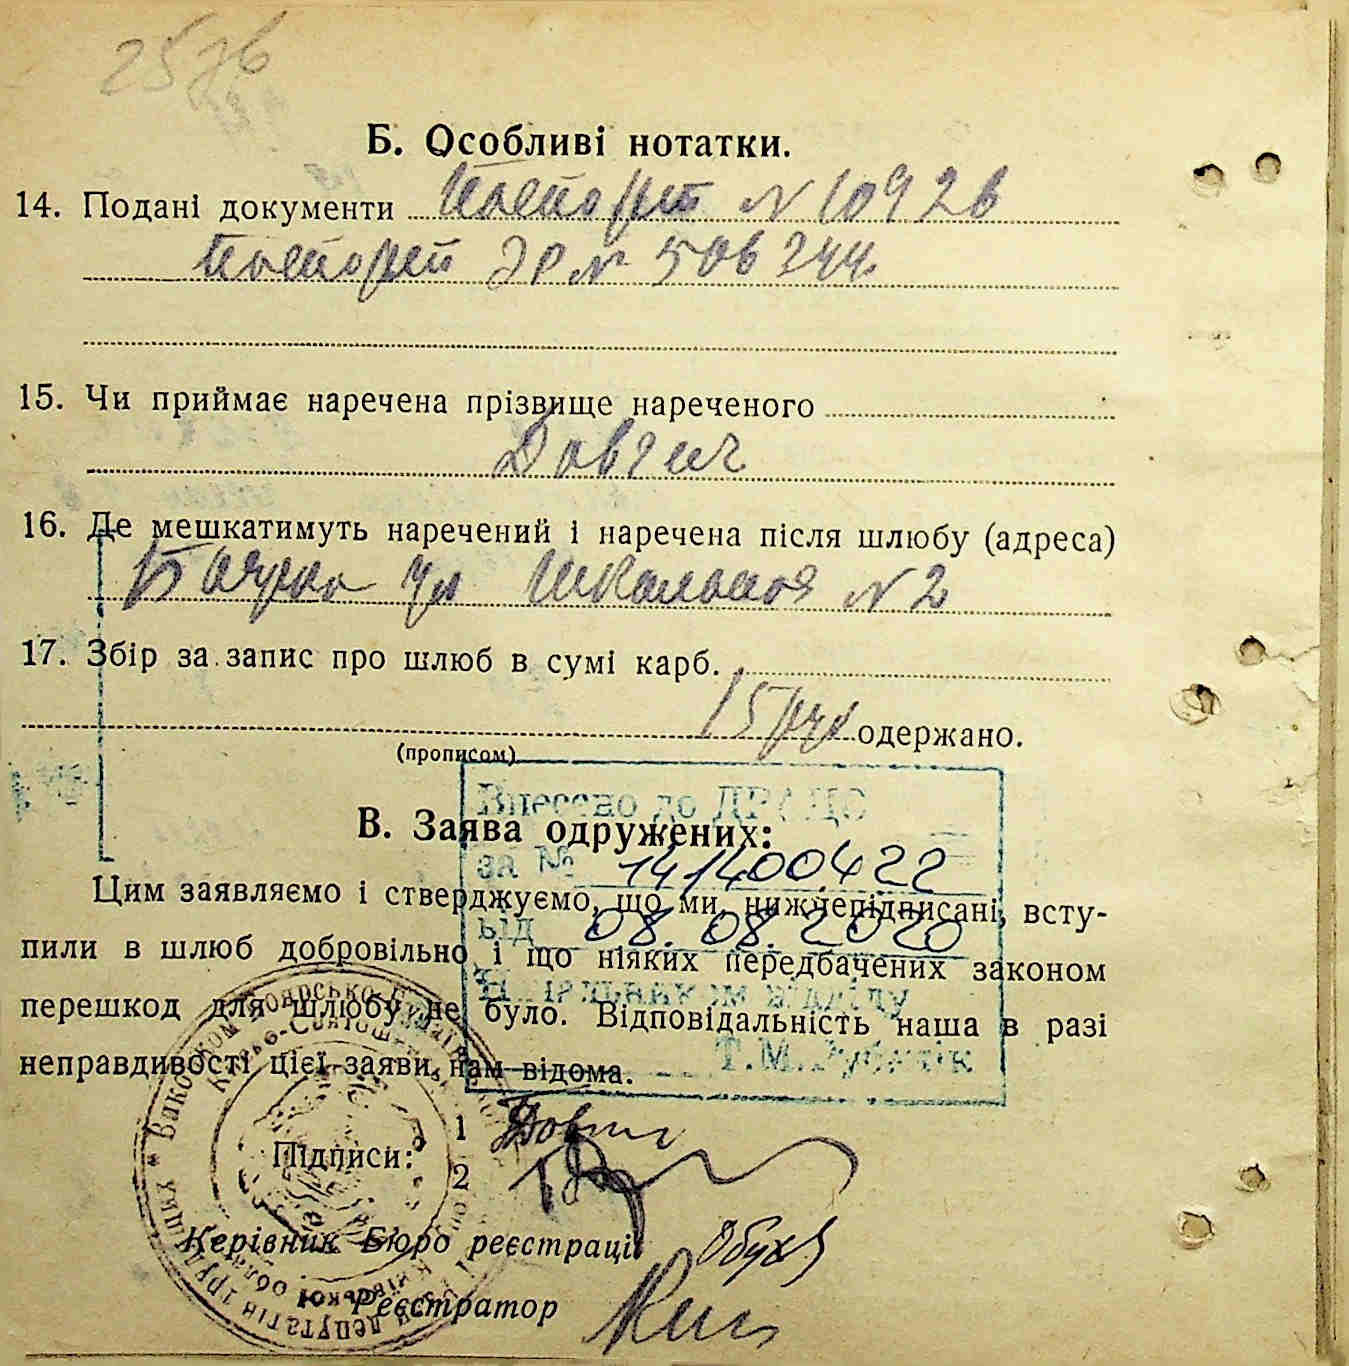 Б. Особливі нотатки.
14. Подані документи Паспорт № 10926
Паспорт ЭР № 506244
15. Чи приймає наречена прізвище нареченого
Довгич
16. Де мешкатимуть наречений і наречена після шлюбу (адреса)
ул Школьная № 2
17. Збір за запис про шлюб в сумі карб.
15 руб одержано.
(прописом)
Внесено до ДРАЦС
В. Заява одружених:
за № 141400422
Цим заявляємо і стверджуємо, що ми, нижчепідписані, всту-
від 08.08.2020
пили в шлюб добровільно і що ніяких передбачених законом
Начальником відділу
перешкод для шлюбу не було. Відповідальність наша в разі
Т.М.
неправдивості цієї заяви нам відома.
Підписи: 1
2
Керівник Бюро реєстрації
Реєстратор